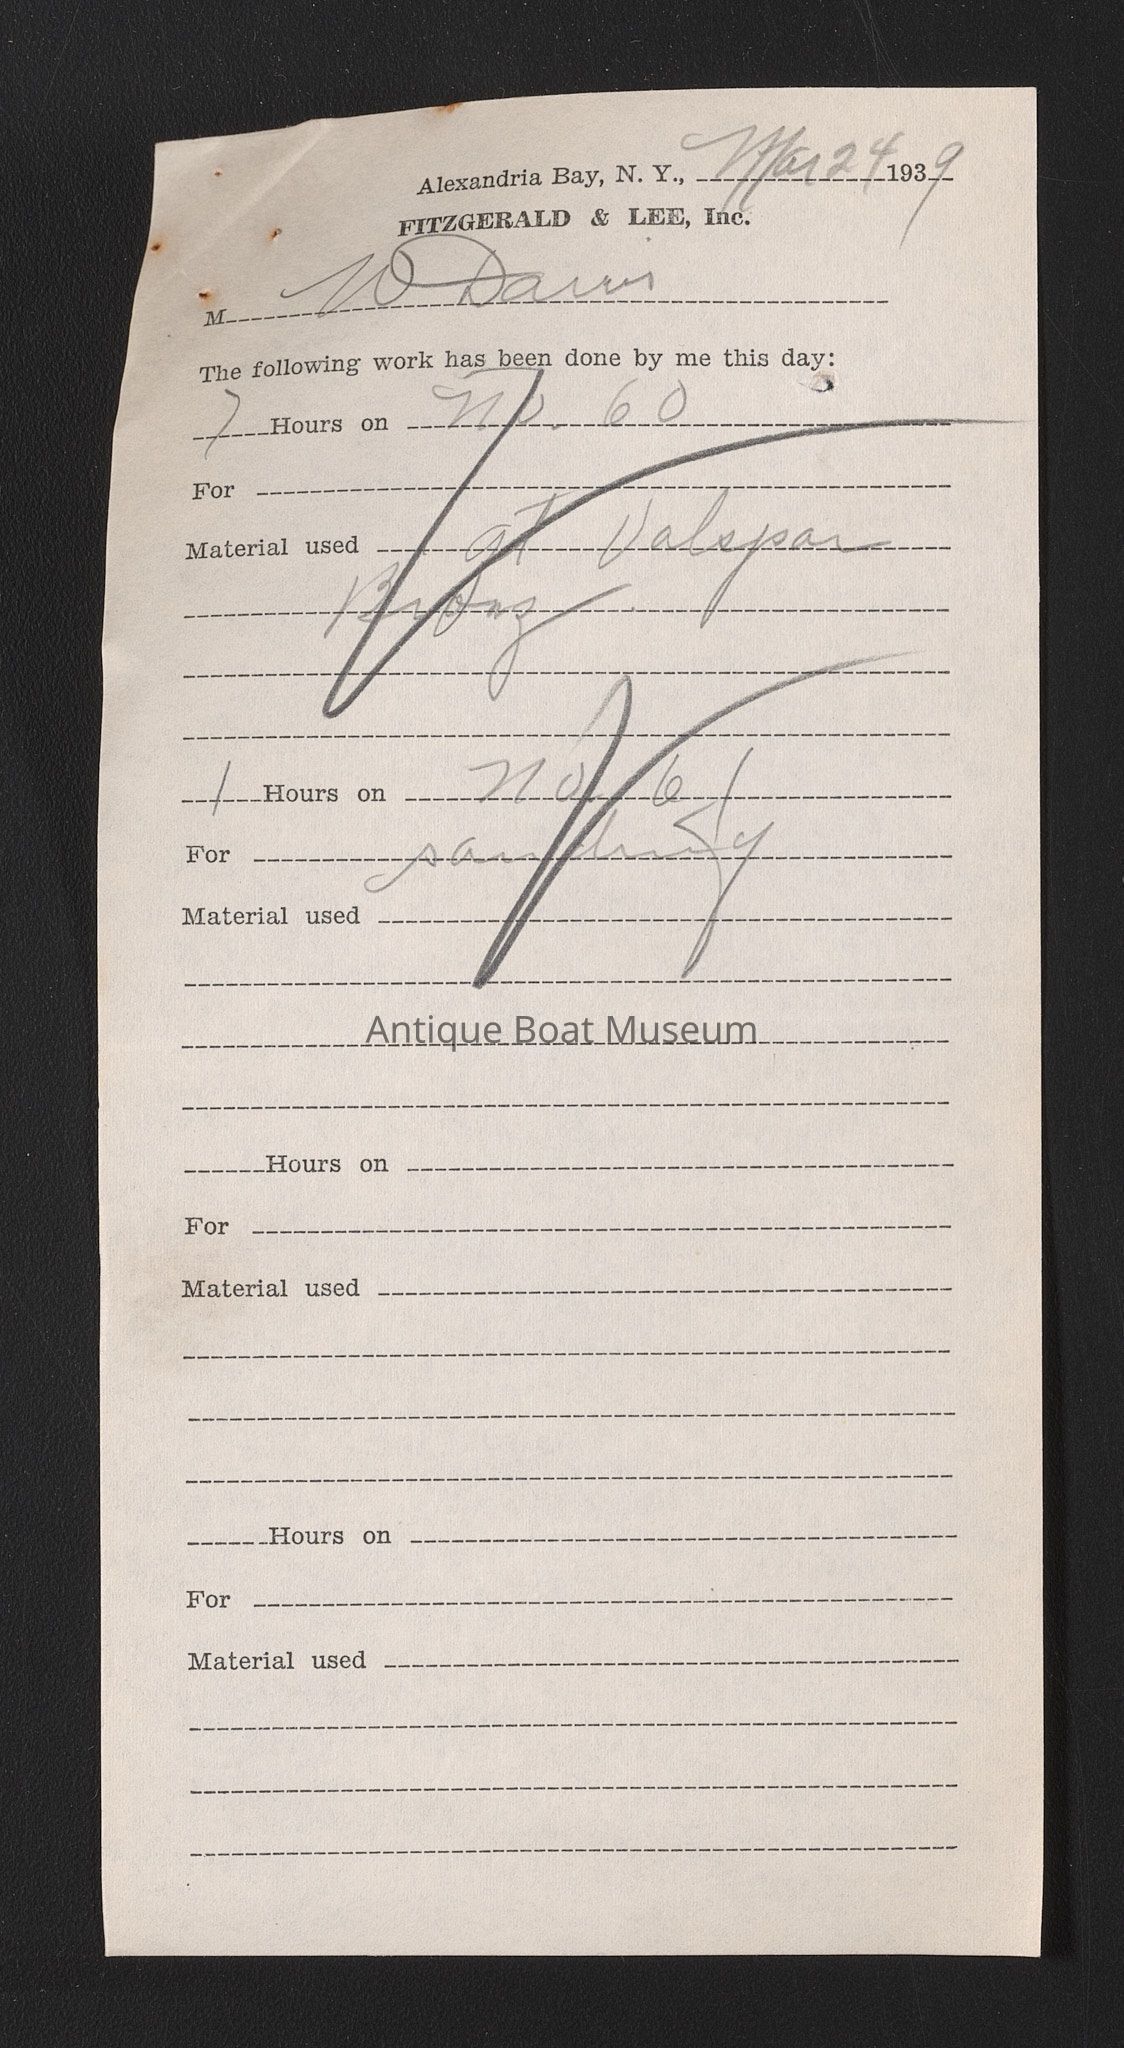 Alexandria Bay, N. Y., Mar 24 1939
FITZGERALD & LEE, Inc.
M W Davis
The following work has been done by me this day:
7 Hours on No. 60
For
Material used qt Valspar
Bronz
1 Hours on No. 61
For sanding
Material used
Antique Boat Museum
Hours on
For
Material used
Hours on
For
Material used